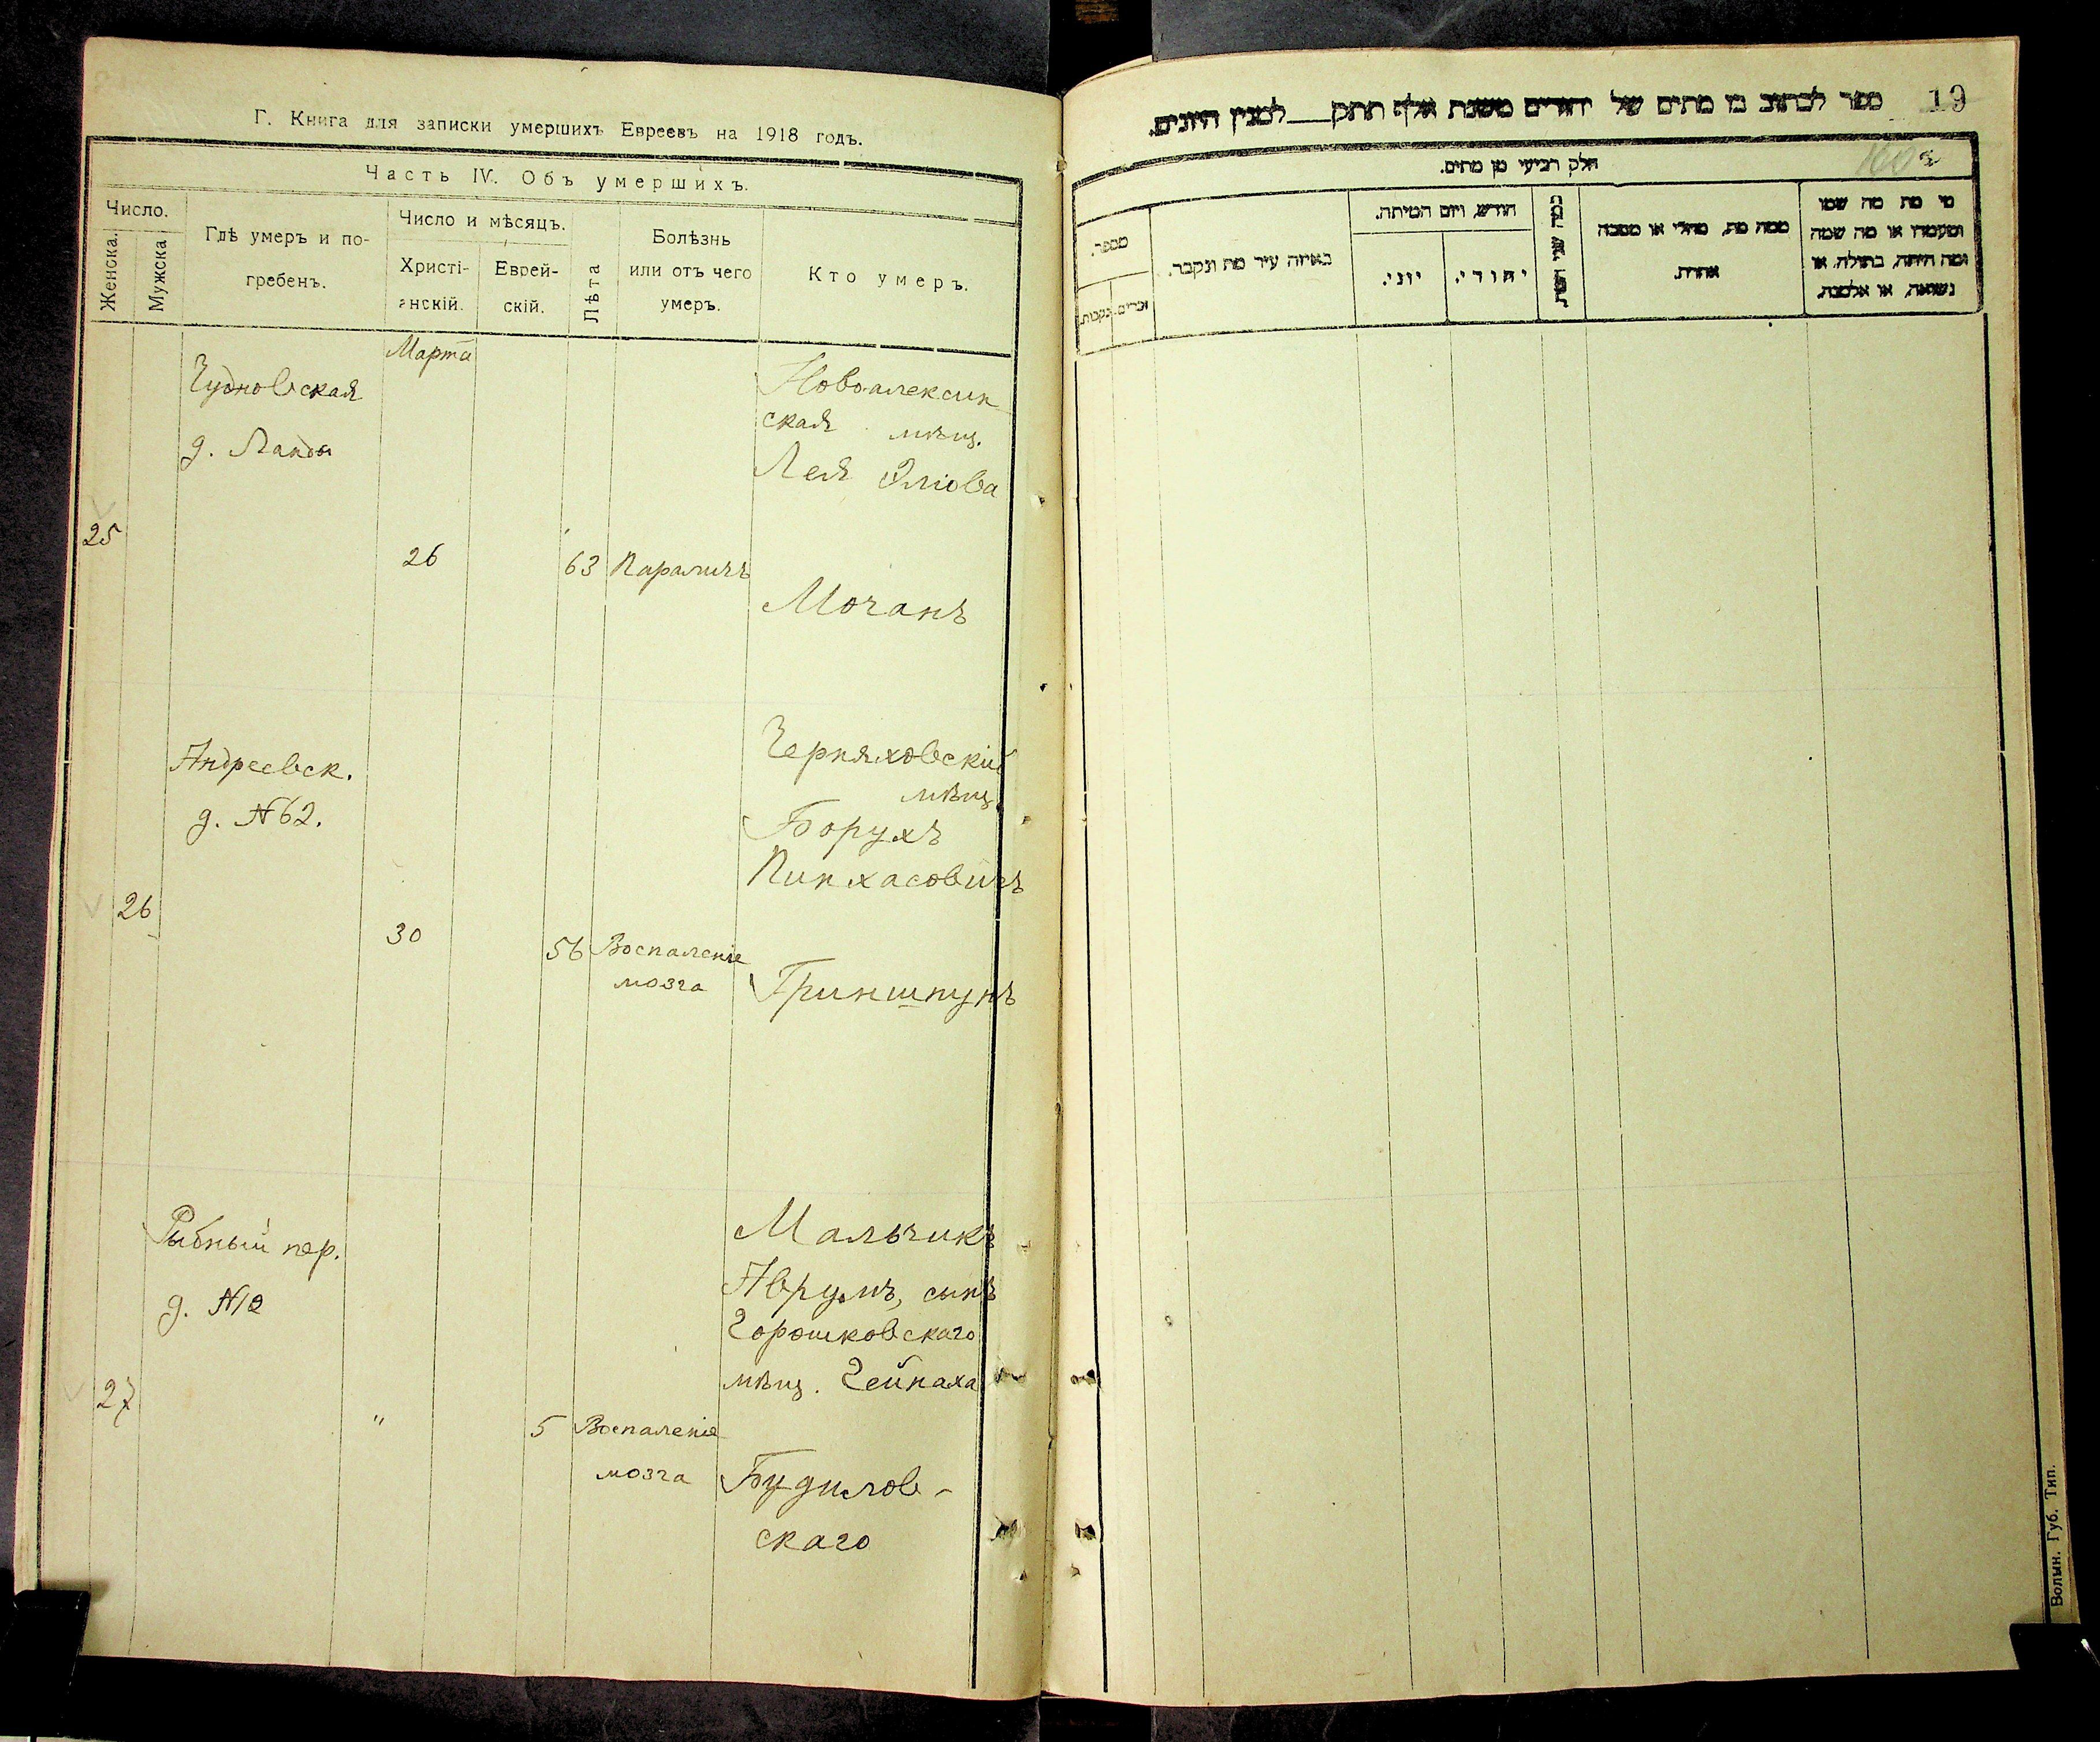 Г. Книга для записки умершихъ Евреевъ на 1918 годъ.
Часть IV. Объ умершихъ.
Число.
Женска.
Мужска
Гдѣ умеръ и по-
гребенъ.
Число и мѣсяцъ.
Христі-
анскій.
Еврей-
скій.
Лѣта
Болѣзнь
или отъ чего
умеръ.
Кто умеръ.
Марта
Чудновская
д. Ланда
25
26
63
Параличъ
Новоалексин
ская мѣщ.
Лея Эліова
Мочанъ
Андреевск.
д. №62.
26
30
56
Воспаленіе
мозга
Черняховскій
мѣщ.
Борухъ
Пинхасовичъ
Гриншпунъ
Рыбный пер.
д. №12
27
"
5
Воспаленіе
мозга
Мальчикъ
Аврумъ, сынъ
Горошковскаго
мѣщ. Гейнаха
Будилов-
скаго
ספר לכתוב בו מתים של יהודים משנת אלף תתק__למנין היונים.
19
חלק רביעי מן מתים.
מספר.
זכרים.
נקבות.
באיזה עיר מת ונקבר.
חודש, ויום המיתה.
יוני.
יהודי.
כמה שני המת
ממה מת, מחלי או מסבה
אחרת.
מי מת מה שמו
ומעמדו או מה שמה
ומה היתה, בתולה, או
נשואה, או אלמנה.
Волын. Губ. Тип.